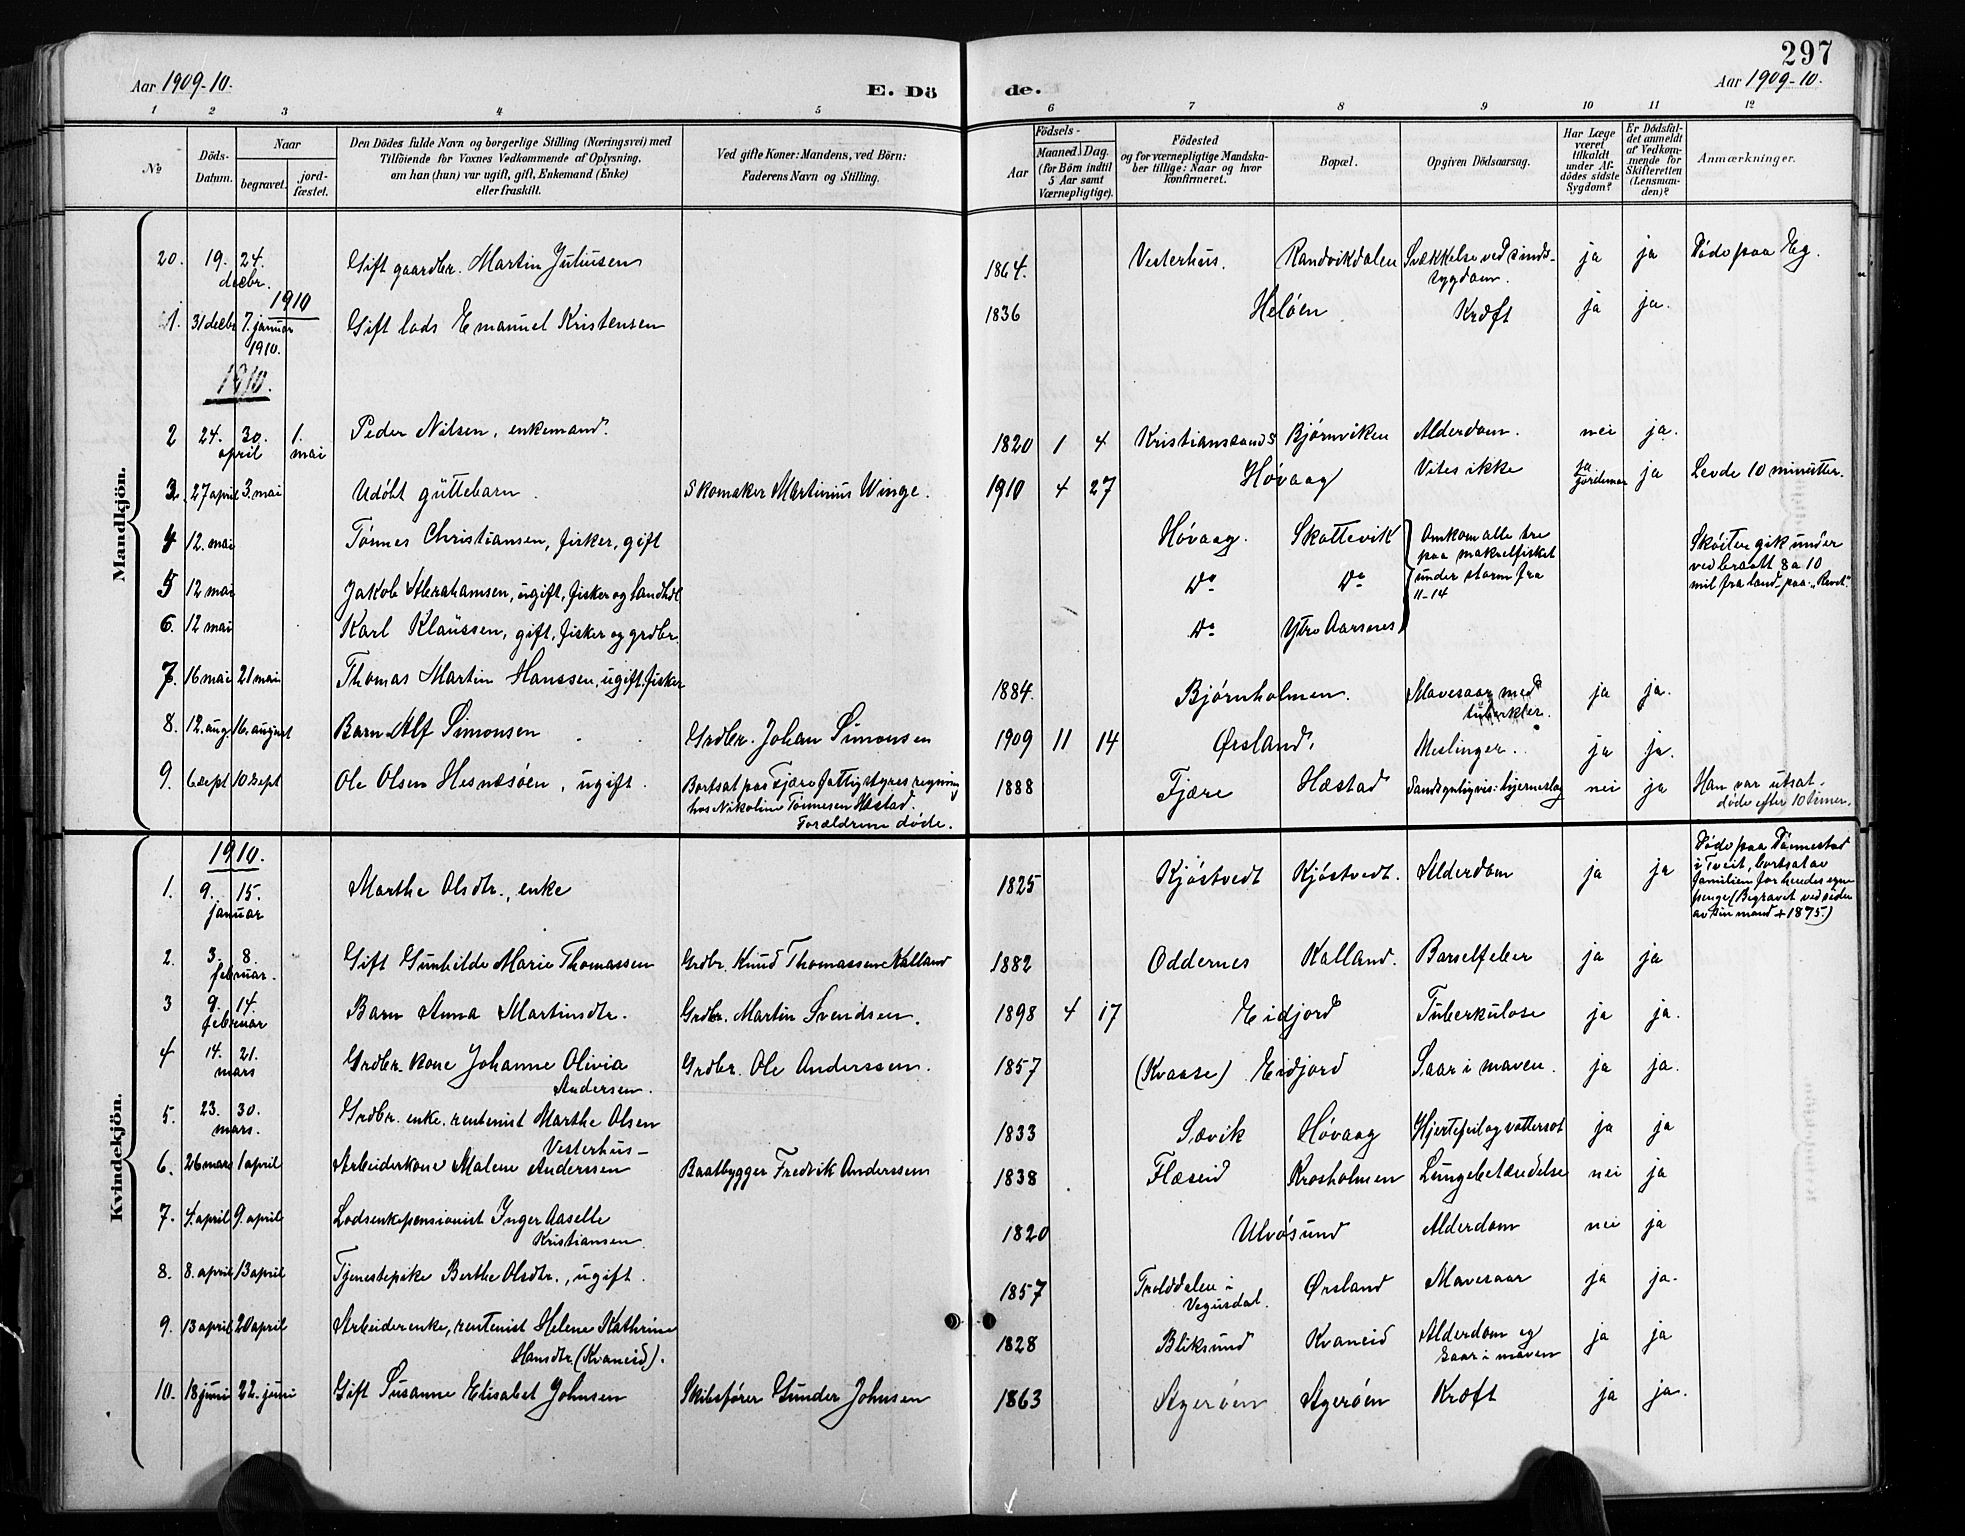 297
Aar 1909-10.
E. Dö
de.
Aar 1909-10.
1 2 3 4 5 6 7 8 9 10 11 12
No
Döds-Datum.
Naar
begravet.
jord-fæstet.
Den Dödes fulde Navn og borgerlige Stilling (Næringsvei) med
Tilföiende for Voxnes Vedkommende af Oplysning,
om han (hun) var ugift, gift, Enkemand (Enke)
eller fraskilt.
Ved gifte Koner: Mandens, ved Börn:
Faderens Navn og Stilling.
Födsels-
Aar
Maaned. Dag.
(for Börn indtil
5 Aar samt
Værnepligtige).
Födested
og for værnepligtige Mandska-
ber tillige: Naar og hvor
konfirmeret.
Bopæl.
Opgiven Dödsaarsag.
Har Læge
været
tilkaldt
under Af-
dödes sidste
Sygdom?
Er Dödsfal-
det anmeldt
af Vedkom-
mende for
Skifteretten
(Lensman-
den)?
Anmærkninger.
Mandkjön.
20. 19. 24. decbr. Gift gaardbr. Martin Juliusen 1864. Vesterhus. Randvikdalen Svækkelse ved sinds-
sygdom. ja ja Døde paa Eg.
1910
1. 31 decbr 7. januar 1910. Gift lods Emanuel Kristensen 1836 Heløen Kræft ja ja.
1910.
2 24. 30. april 1. mai Peder Nilsen, enkemand. 1820 1 4 Kristianssands Bjørnviken Alderdom. nei ja.
3. 27 april 3. mai Udöbt guttebarn. Skomaker Martinius Winge. 1910 4 27 Høvaag Vites ikke ja
jordemor ja Levde 10 minutter.
4 12. mai Tønnes Christiansen, fisker, gift Høvaag. Skottevik Omkom alle tre
paa makrelfisket
under storm fra
11-14
Skøiten gik under
ved braatt 8 a 10
mil fra land paa "Revet"
5 12 mai Jakob Abrahamsen, ugift, fisker og landhdl Do Do
6. 12 mai Karl Klaussen, gift, fisker og grdbr. Do Ytre Aarsnes
7. 16 mai 21 mai Thomas Martin Hanssen, ugift, fisker 1884. Bjørnholmen. Mavesaar med
tuberkler. ja ja.
8. 12. aug. 16. august Barn Alf Simonsen Grdbr. Johan Simonsen 1909 11 14 Ørsland. Meslinger. ja ja.
9. 6 sept 10 sept Ole Olsen Hesnesöen, ugift. Bortsat paa Fjære fattigstyres regning
hos Nikoline Tønnesen Hæstad.
Forældrene døde. 1888 Fjære Hæstad Sandsynligvis: hjerneslag nei ja Han var utsat.
døde efter 10 timer.
Kvindekjön.
1910.
1. 9. 15. januar Marthe Olsdtr., enke 1825 Kjöstvedt Kjöstvedt. Alderdom ja ja Døde paa Dönnestad
i Tveit, bortsat av
familien for hendes egne
penge (Begravet ved siden
av sin mand + 1875.)
2. 3. 8. februar. Gift Gunhilde Marie Thomassen Grdbr. Knud Thomassen Kalland 1882 Oddernes Kalland. Barselfeber ja ja
3 9. 14. februar Barn Anna Martinsdtr. Grdbr. Martin Svendsen. 1898 4 17 Eidjord Tuberkulose ja ja.
4 14. 21. mars Grdbr. kone Johanne Olivia
Andersen. Grdbr. Ole Anderssen. 1857 (Kvaase) Eidjord Saar i maven. ja ja.
5. 23. 30. mars. Grdbr. enke. rentenist Marthe Olsen
Vesterhus- 1833 Sævik Høvaag Hjertefeil og vattersot ja ja
6. 26 mars 1 april Arbeiderkone Malene Anderssen Baatbygger Fredrik Anderssen 1838 Flæseid Krosholmen Lungebetændelse nei ja
7. 4. april 9. april Lodsenkepensionist Inger Aaselle
Kristiansen. 1820 Ulvösund Alderdom nei ja
8. 8. april 13 april Tjenestepike Berthe Olsdtr., ugift. 1857 Trolddalen i
Vegusdal. Ørsland Mavesaar ja ja.
9. 13 april 20 april Arbeiderenke, rentenist Helene Kathrine
Hansdtr. (Kvaneid). 1828 Bliksund Kvaneid Alderdom og
saar i maven ja ja
10. 18 juni 22. juni Gift Susanne Elisabet Johnsen Skibsfører Gunder Johnsen 1863 Agerøen Agerøen Kræft ja ja.